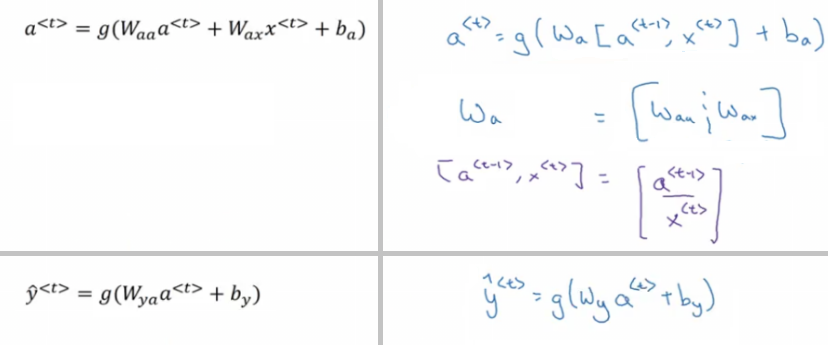 a^{<t>} = g(W_{aa}a^{<t>} + W_{ax}x^{<t>} + b_a)
a^{<t>} = g(W_a[a^{<t-1>}, x^{<t>}] + b_a)
W_a = [W_{aa} ; W_{ax}]
[a^{<t-1>}, x^{<t>}] = [a^{<t-1>} / x^{<t>}]
ŷ^{<t>} = g(W_{ya}a^{<t>} + b_y)
ŷ^{<t>} = g(W_y a^{<t>} + b_y)